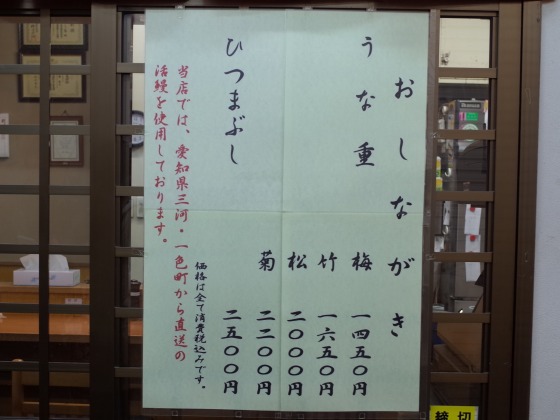 おしながき
うな重
梅 一四五〇円
竹 一六五〇円
松 二〇〇〇円
菊 二二〇〇円
ひつまぶし 二五〇〇円
価格は全て消費税込みです。
当店では、愛知県三河・一色町から直送の
活鰻を使用しております。
締切